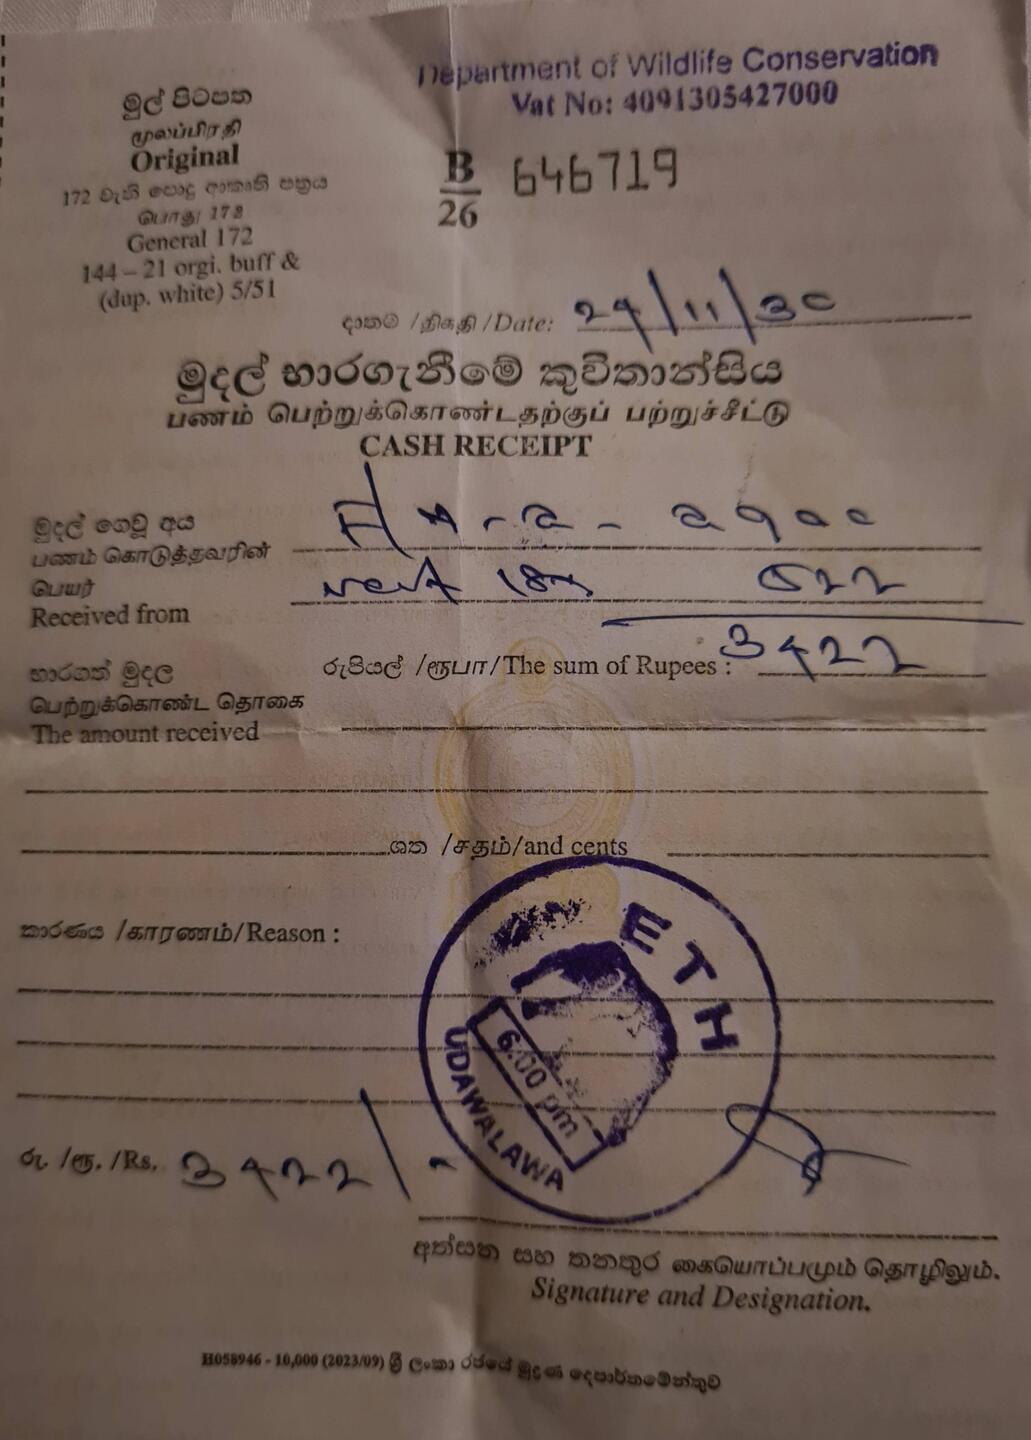 Department of Wildlife Conservation
Vat No: 4091305427000
මුල් පිටපත
மூலப்பிரதி
Original
172 වැනි පොදු ආකෘති පත්‍රය
பொது 172
General 172
144 – 21 orgi. buff &
(dup. white) 5/51
B
26
646719
දාතම /திகதி /Date: 24/11/30
මුදල් භාරගැනීමේ කුවිතාන්සිය
பணம் பெற்றுக்கொண்டதற்குப் பற்றுச்சீட்டு
CASH RECEIPT
මුදල් ගෙවූ අය
பணம் கொடுத்தவரின்
பெயர்
Received from
2900
VAT 18% 522
රුපියල් /ரூபா/The sum of Rupees : 3422
භාරගත් මුදල
பெற்றுக்கொண்ட தொகை
The amount received
ශත /சதம்/and cents
කාරණය /காரணம்/Reason :
ETH
6.00 pm
UDAWALAWA
රු. /ரூ. /Rs. 3422/-
අත්සන සහ තනතුර கையொப்பமும் தொழிலும்.
Signature and Designation.
H058946 - 10,000 (2023/09) ශ්‍රී ලංකා රජයේ මුද්‍රණ දෙපාර්තමේන්තුව